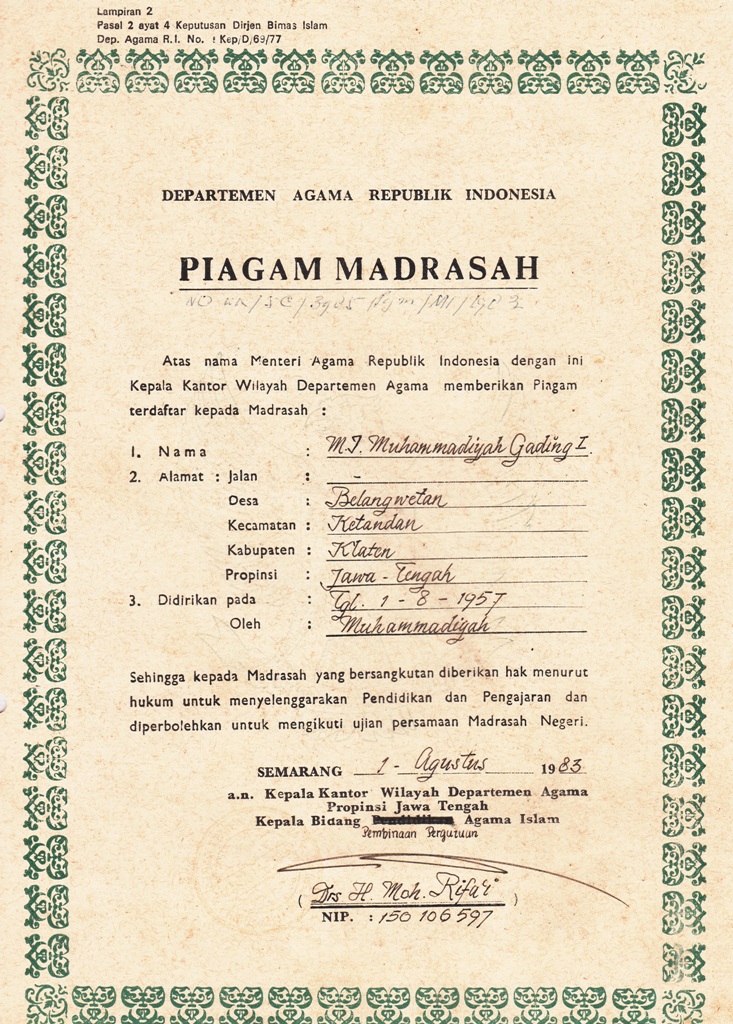 Lampiran 2
Pasal 2 ayat 4 Keputusan Dirjen Bimas Islam
Dep. Agama R.I. No. : Kep/D/69/77
DEPARTEMEN AGAMA REPUBLIK INDONESIA
PIAGAM MADRASAH
Atas nama Menteri Agama Republik Indonesia dengan ini
Kepala Kantor Wilayah Departemen Agama memberikan Piagam
terdaftar kepada Madrasah :
1. Nama : M.I. Muhammadiyah Gading I.
2. Alamat : Jalan : -
Desa : Belangwetan
Kecamatan : Ketandan
Kabupaten : Klaten
Propinsi : Jawa - Tengah
3. Didirikan pada : Tgl. 1 - 8 - 1957
Oleh : Muhammadiyah
Sehingga kepada Madrasah yang bersangkutan diberikan hak menurut
hukum untuk menyelenggarakan Pendidikan dan Pengajaran dan
diperbolehkan untuk mengikuti ujian persamaan Madrasah Negeri.
SEMARANG 1 - Agustus 1983
a.n. Kepala Kantor Wilayah Departemen Agama
Propinsi Jawa Tengah
Kepala Bidang Pendidikan Agama Islam
Pembinaan Perguruan
( Drs H. Moh. Rifa'i )
NIP. : 150 106 597